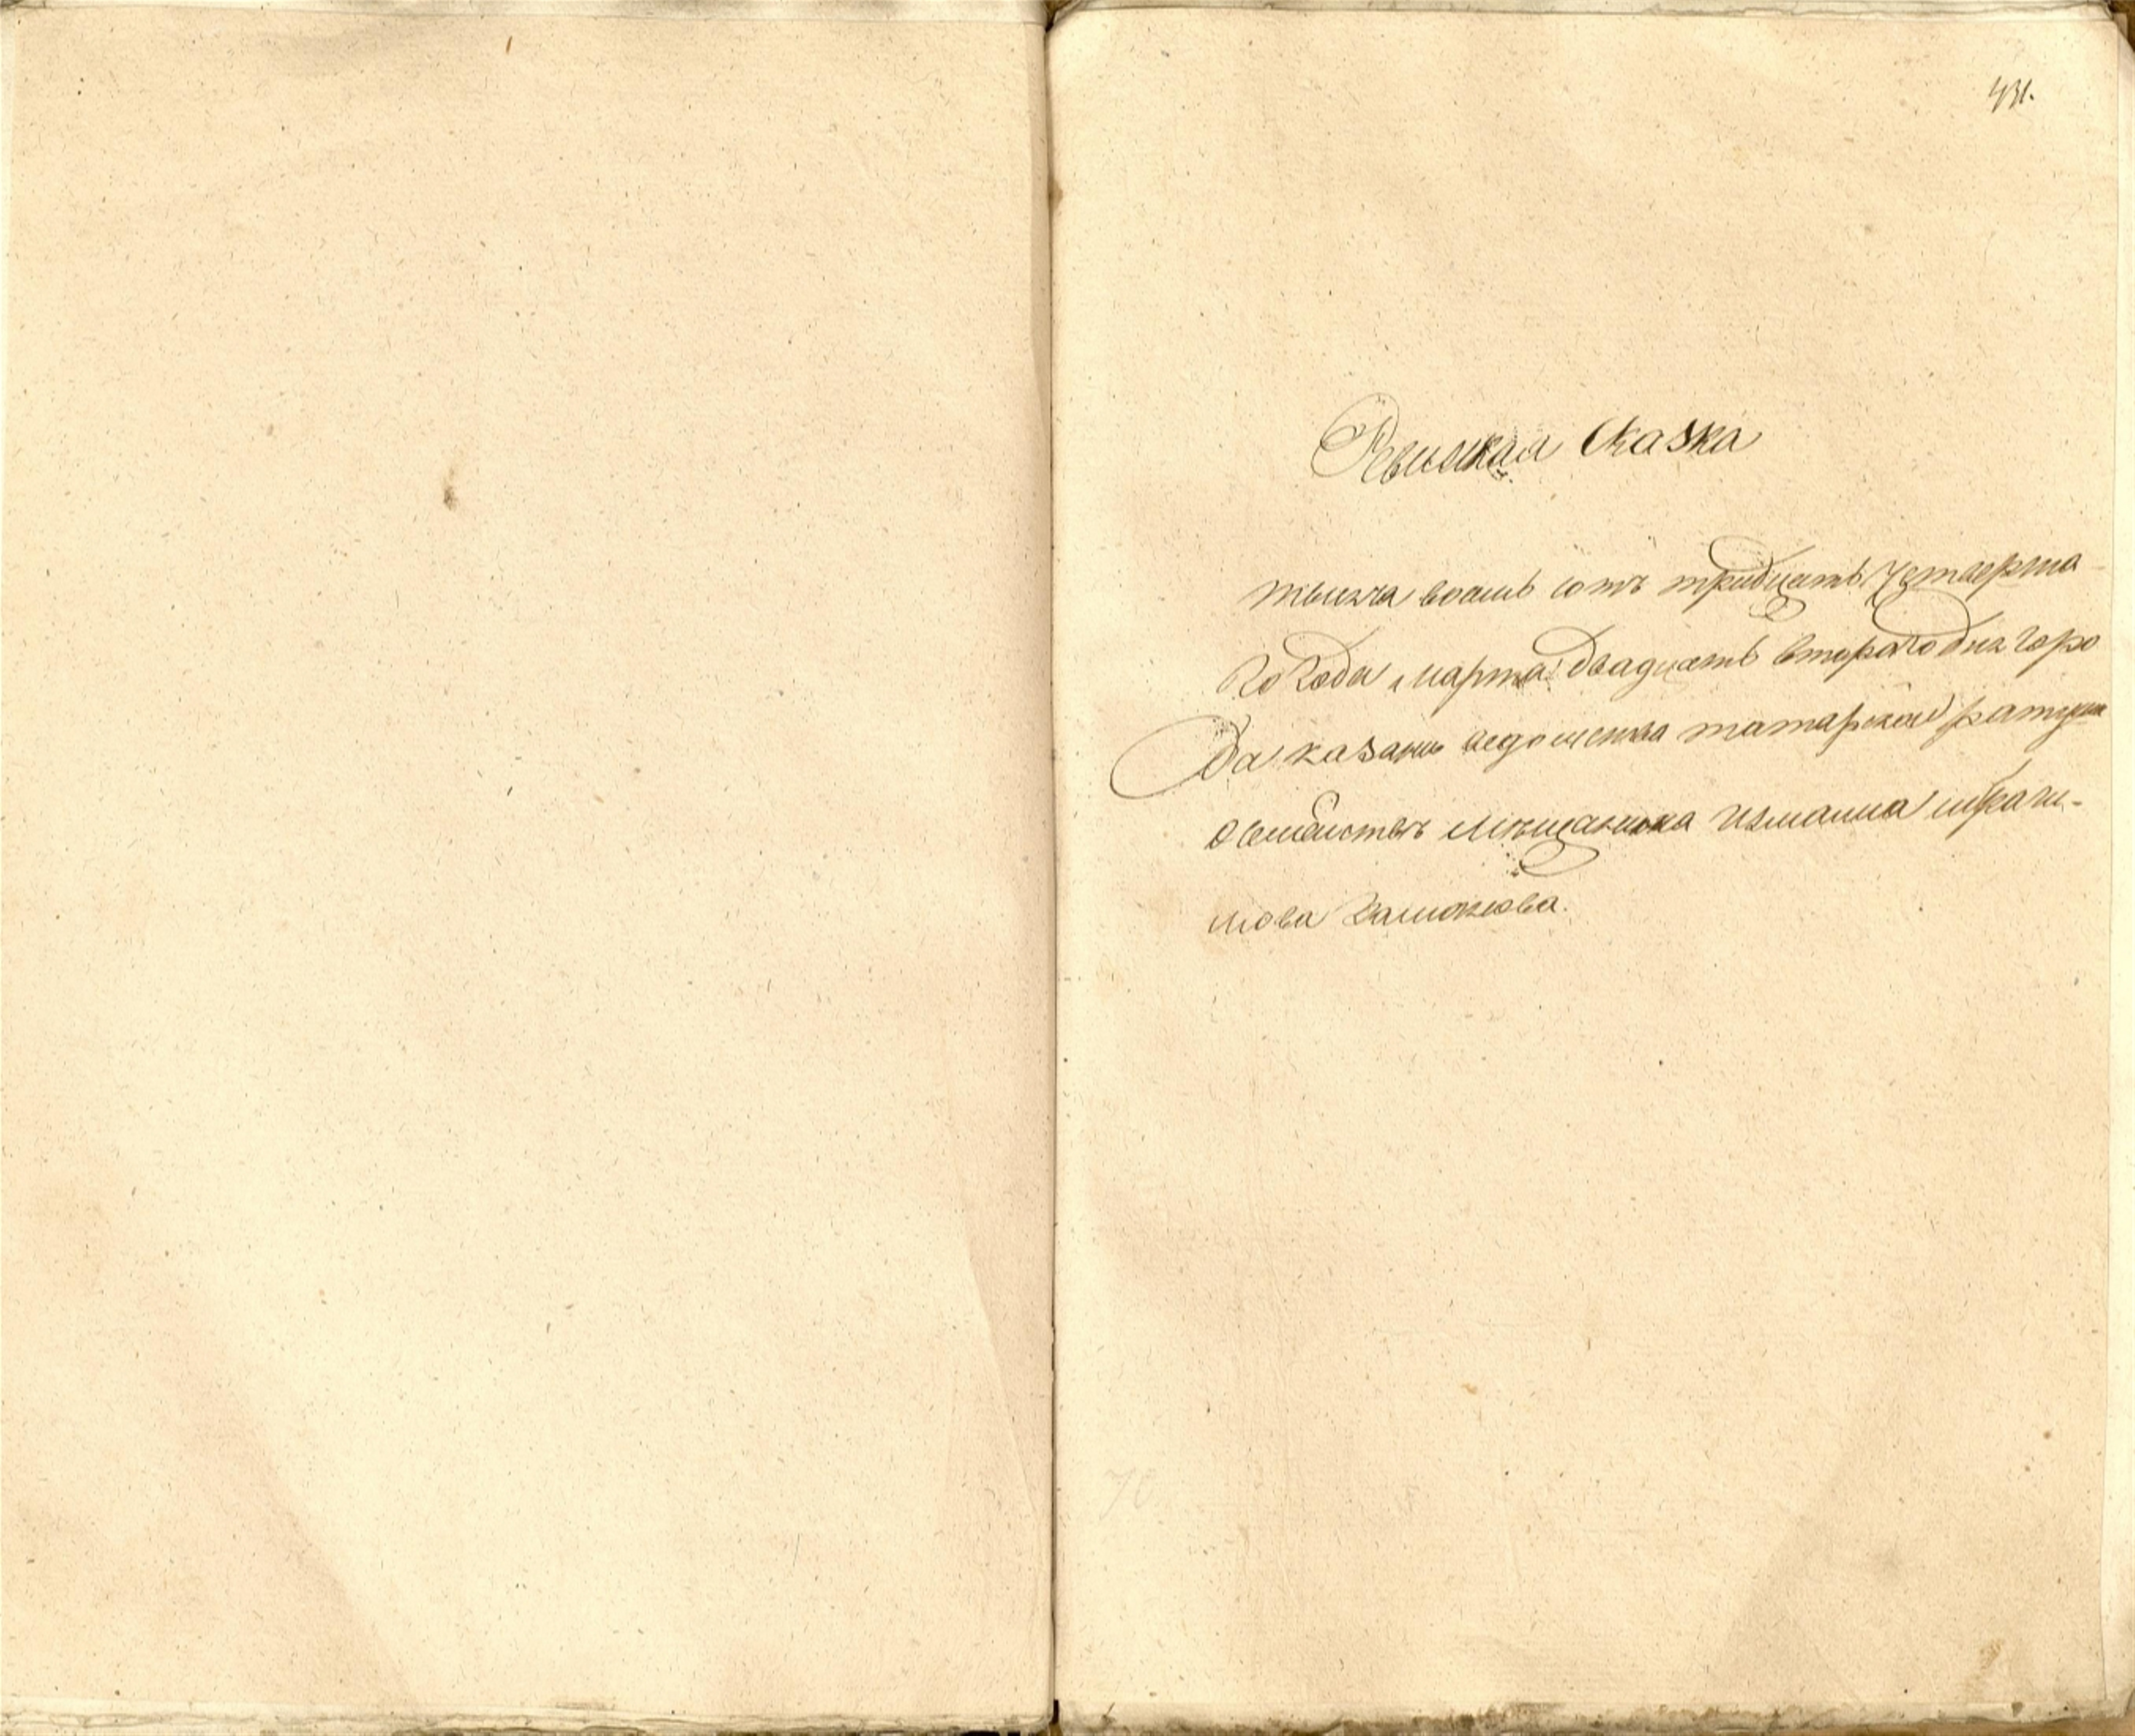 431.
Ревизкая Сказка
тысяча восемь сотъ тридцать четверта
го года марта двадцать втораго дня горо
да казани ведомства татарской ратуши
о семействе мѣщанина Измаила ибраги-
мова